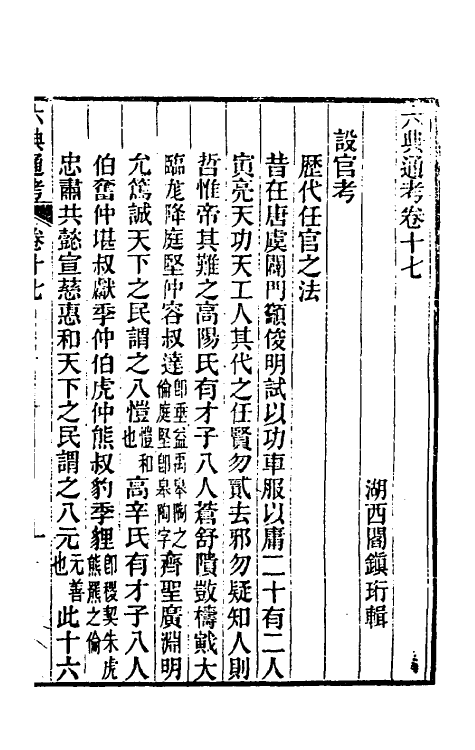 六典通考卷十七
湖西閻鎮珩輯
設官考
歷代任官之法
昔在唐虞闢門籲俊明試以功車服以庸二十有二人
寅亮天功天工人其代之任賢勿貳去邪勿疑知人則
哲惟帝其難之高陽氏有才子八人蒼舒隤敳檮戭大
臨尨降庭堅仲容叔達即垂益禹皋陶之倫庭堅即皋陶字齊聖廣淵明
允篤誠天下之民謂之八愷愷和也高辛氏有才子八人
伯奮仲堪叔獻季仲伯虎仲熊叔豹季貍即稷契朱虎熊羆之倫
忠肅共懿宣慈惠和天下之民謂之八元元善也此十六
六典通考
卷十七
一